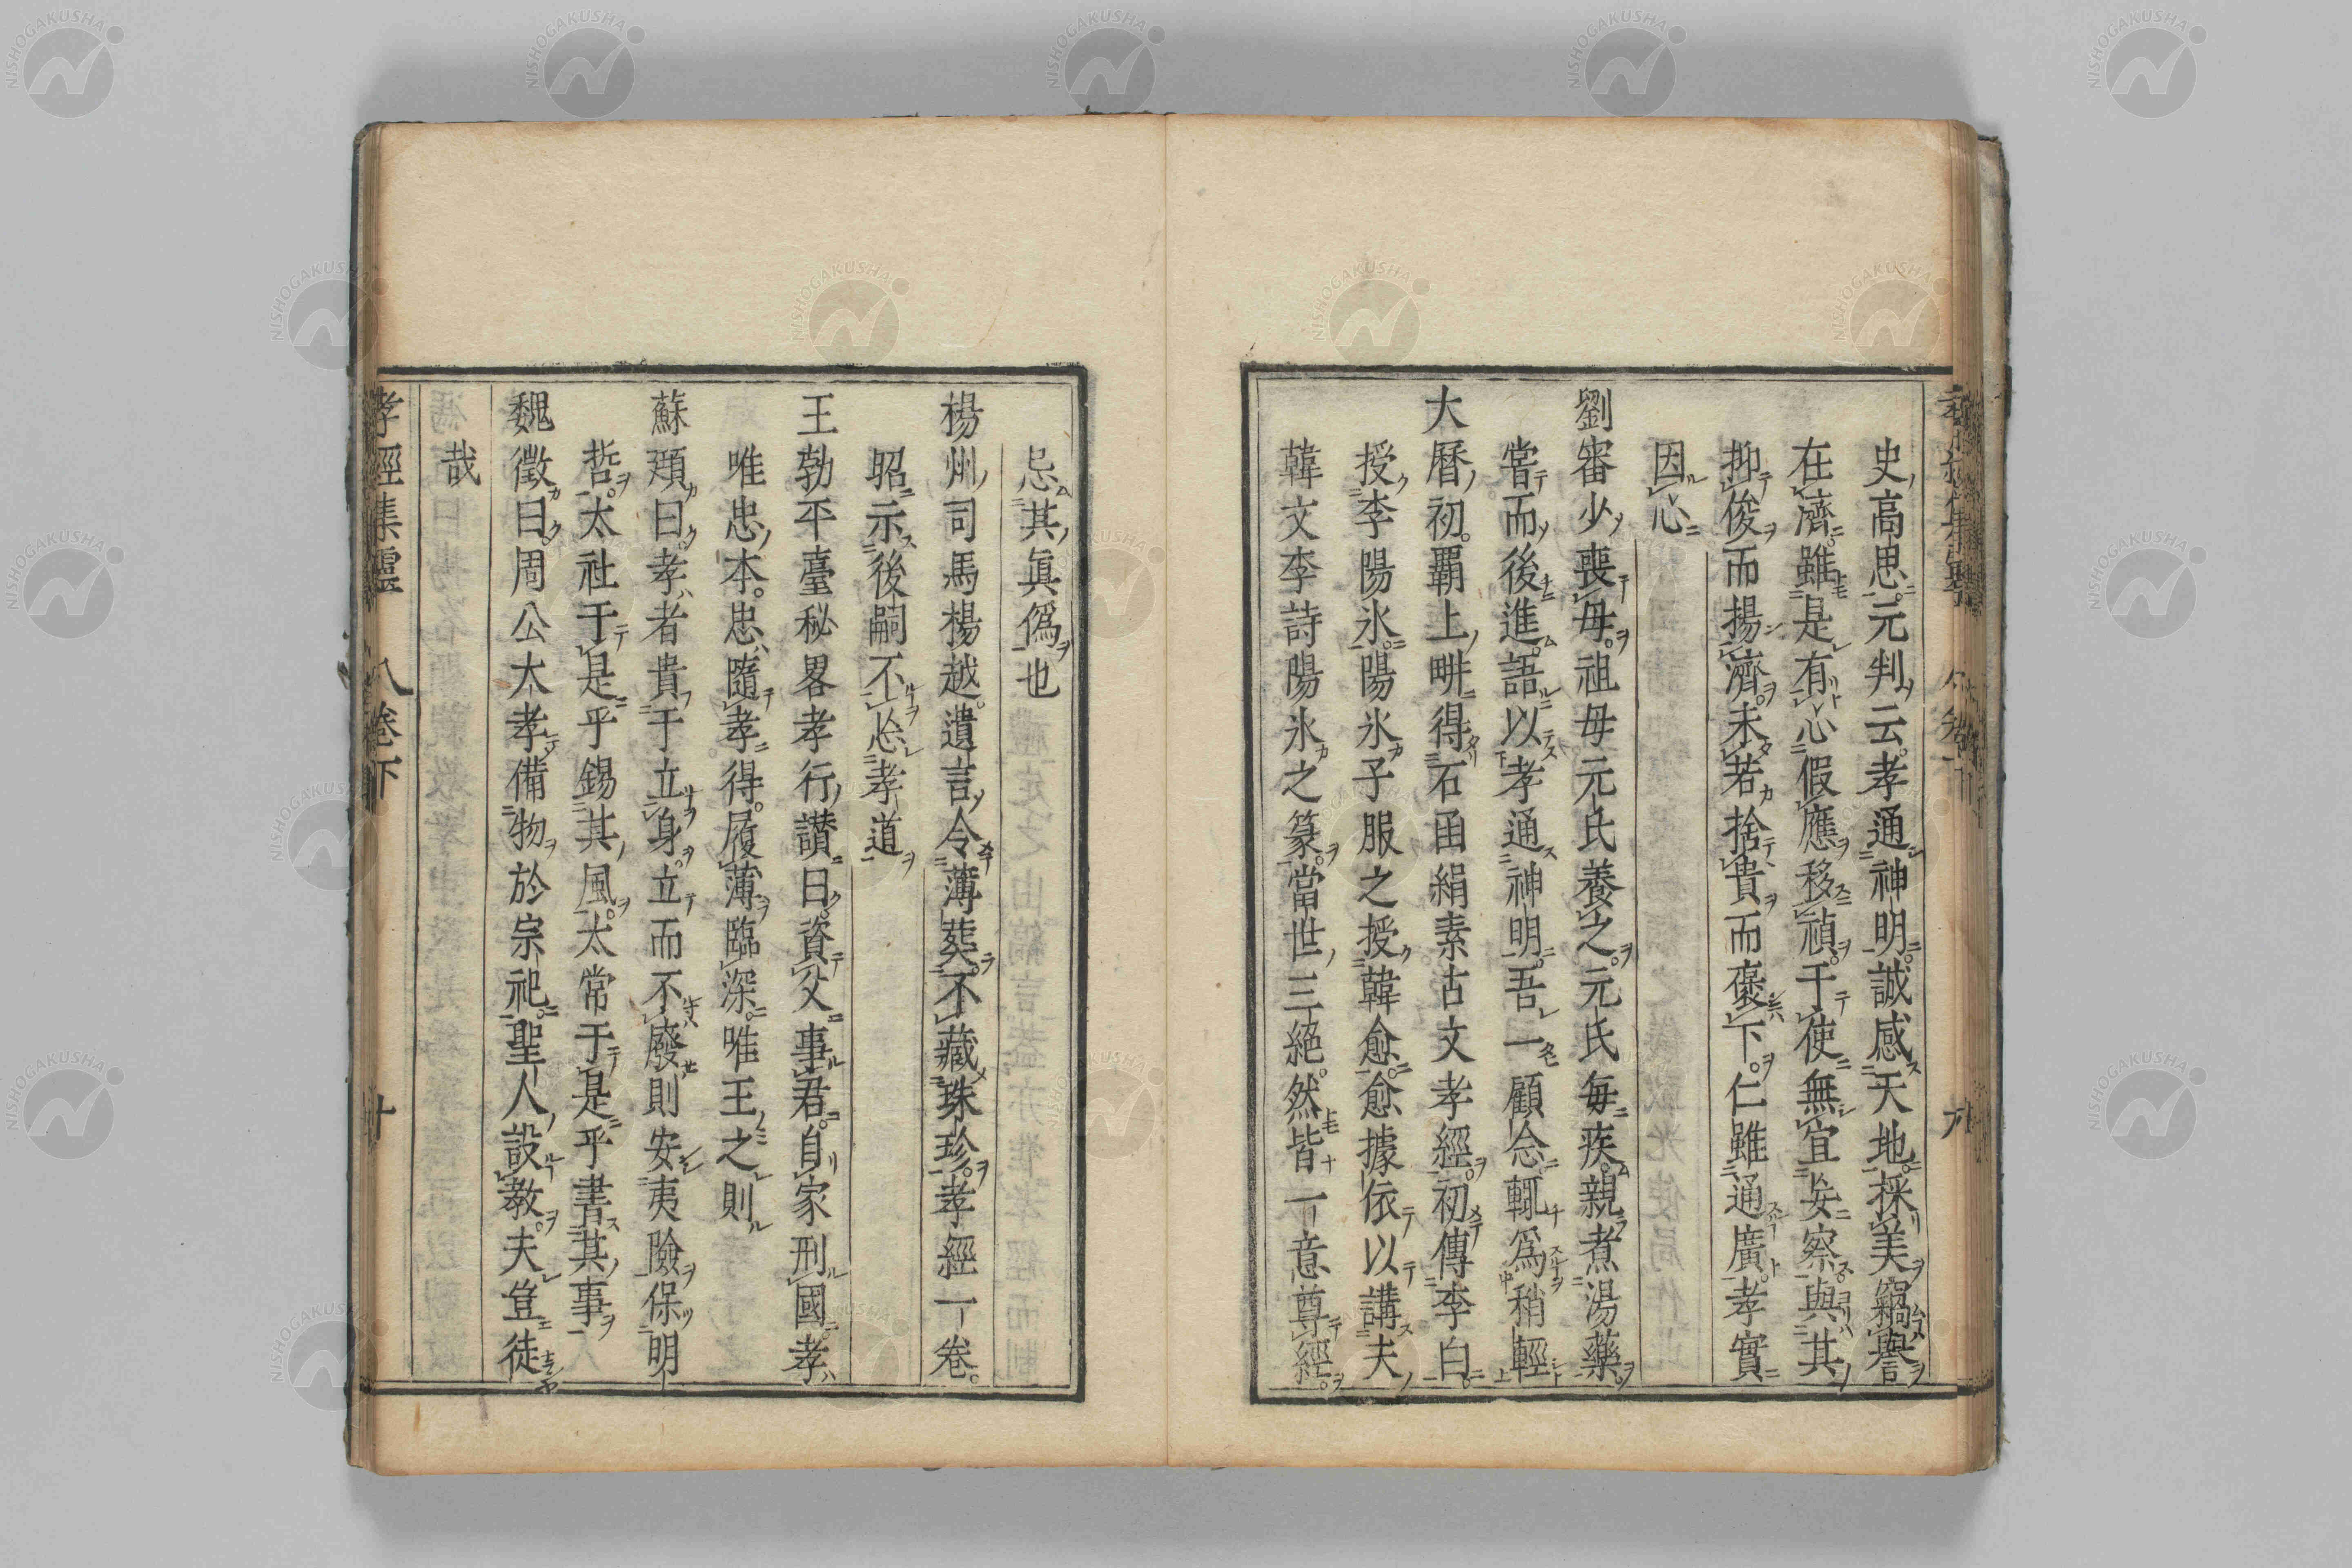 史高思元判云孝通神明誠感天地採美竊譽
在濟雖是有心假應移禎于使無宜妄察與其
抑俊而揚濟未若捨貴而褒下仁雖通廣孝實
因心
劉審少喪母祖母元氏養之元氏每疾親煮湯藥
嘗而後進語以孝通神明吾一顧念輒爲稍輕
大曆初霸上畊得石函絹素古文孝經初傳李白
授李陽氷陽氷子服之授韓愈愈據依以講夫
韓文李詩陽氷之篆當世三絕然皆一意尊經
忌其眞僞也
楊州司馬楊越遺言令薄葬不藏珠珍孝經一卷
昭示後嗣不忘孝道
王勃平臺秘畧孝行讃曰資父事君自家刑國孝
唯忠本忠隨孝得履薄臨深唯王之則
蘇頲曰孝者貴于立身立而不廢則安夷險保明
哲太社于是乎錫其風太常于是乎書其事
魏徵曰周公大孝備物於宗祀聖人設教夫豈徒
哉
孝經集靈 卷下 十